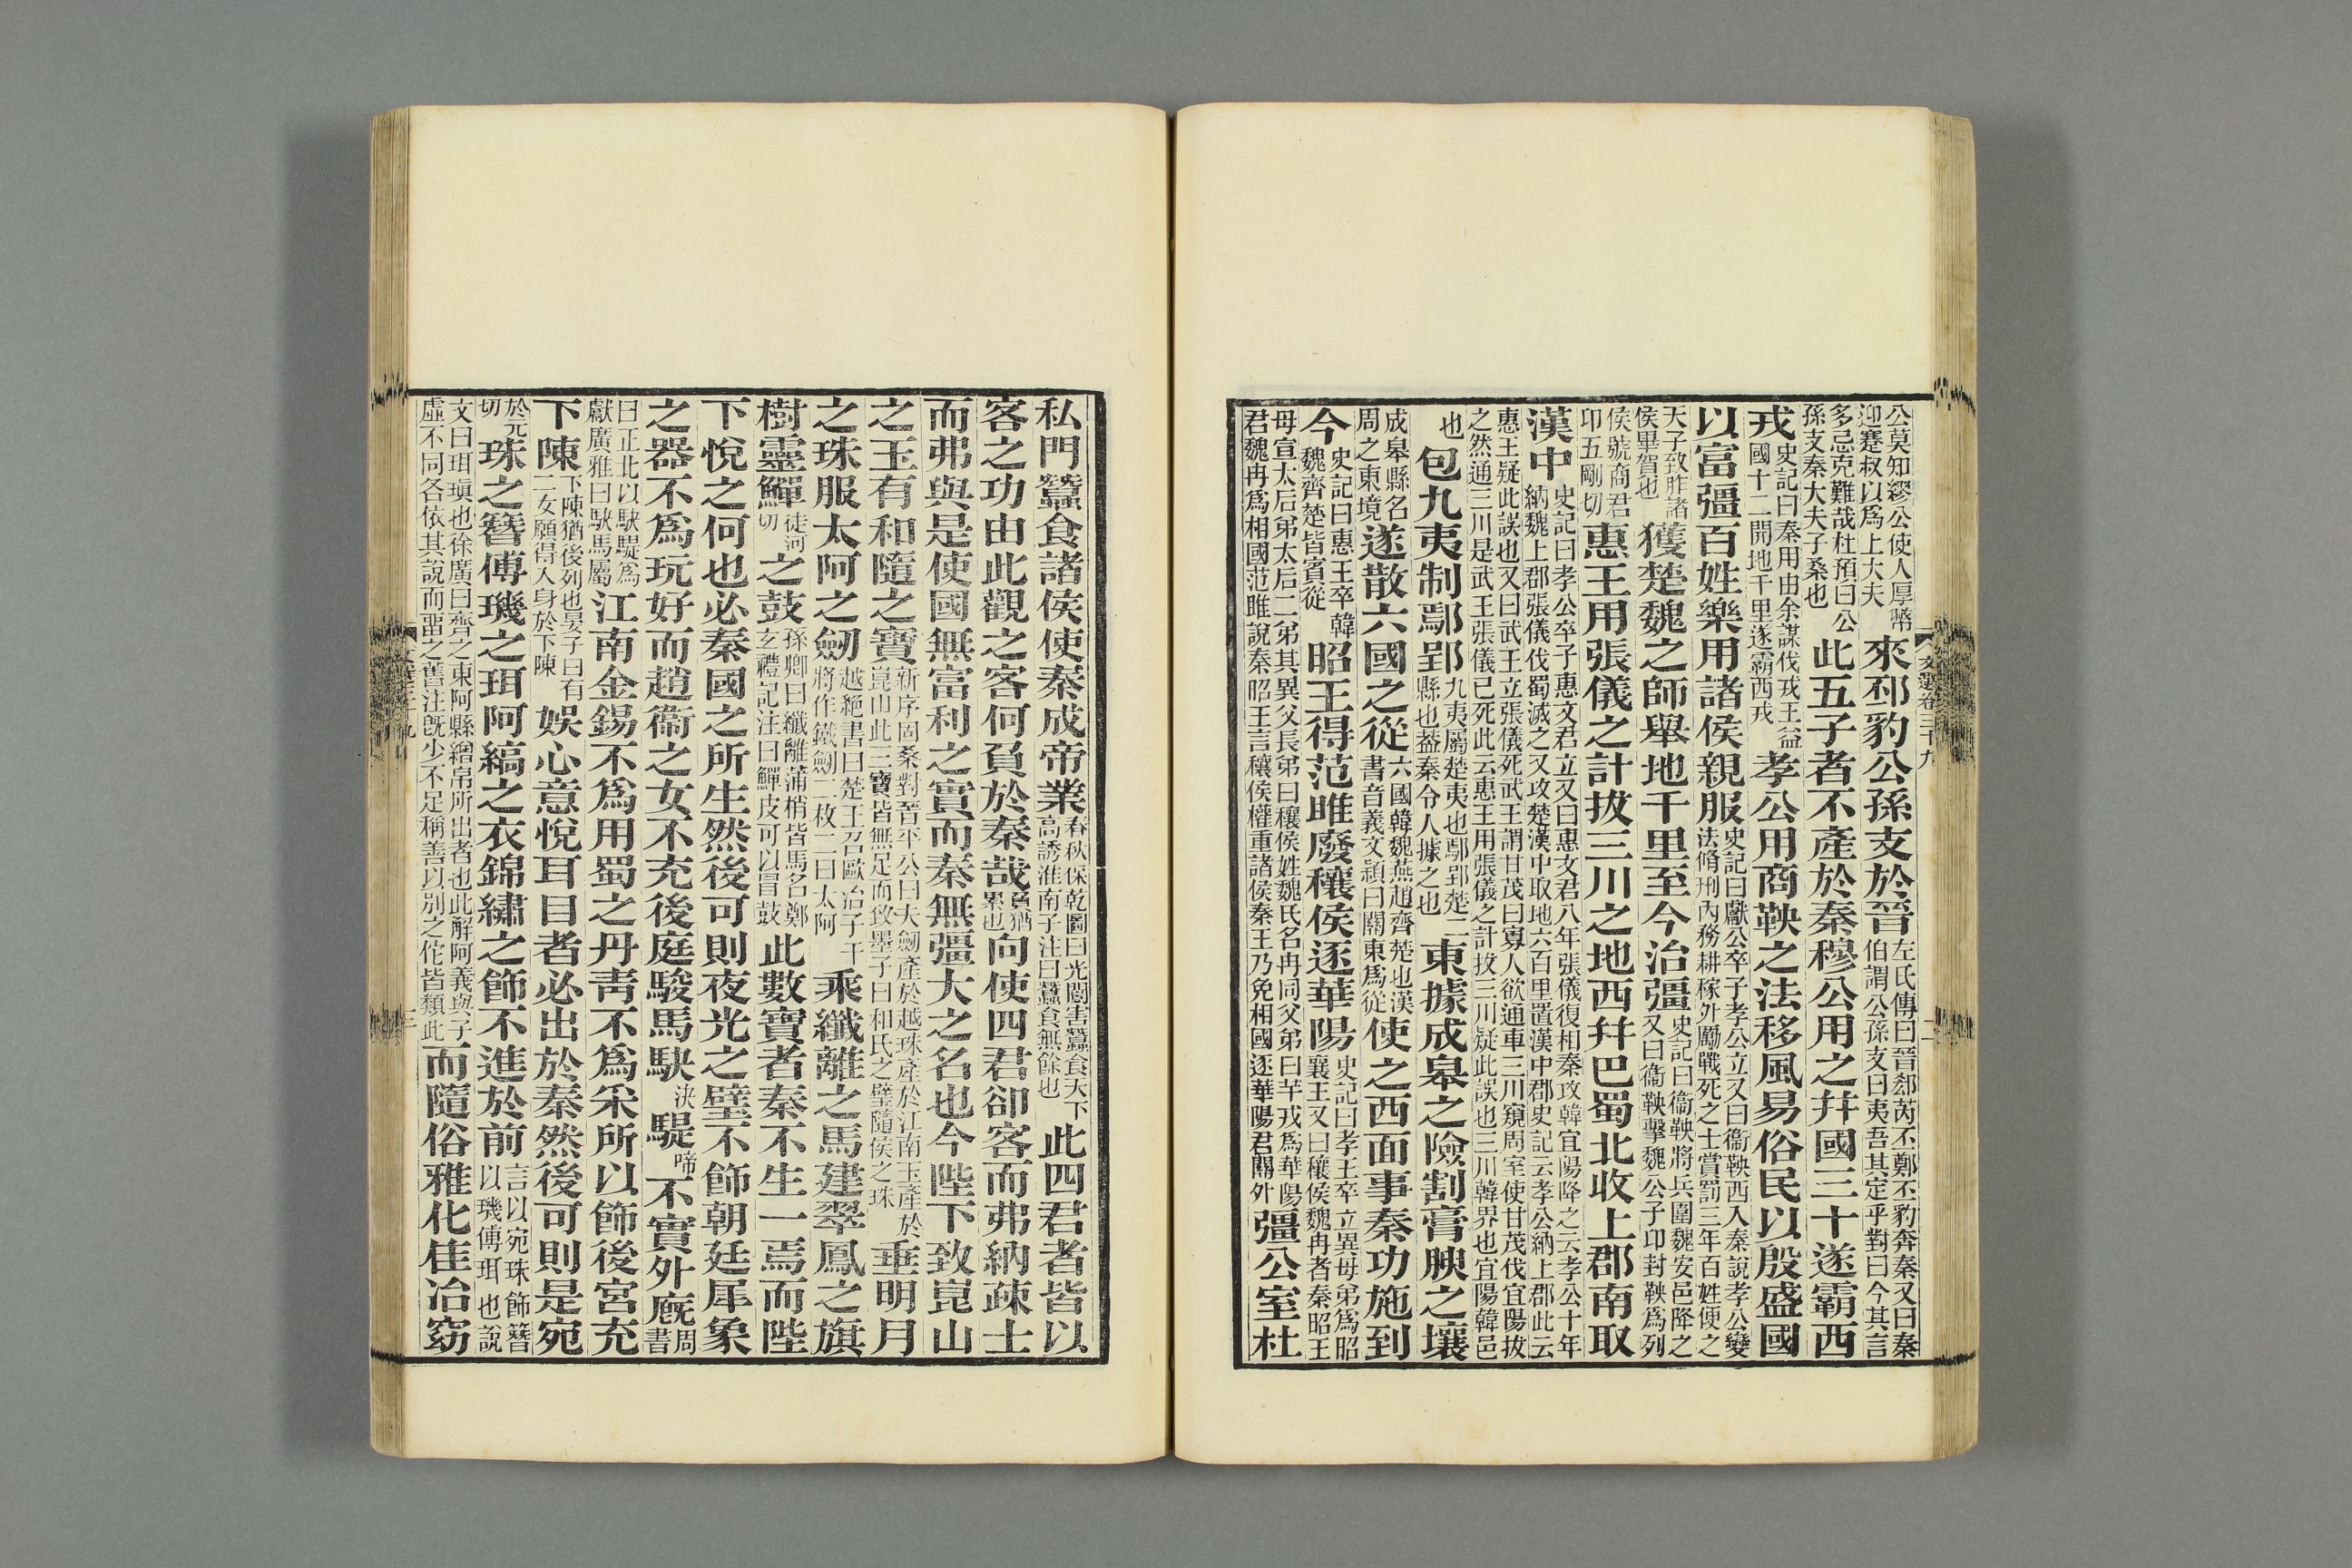 公莫知繆公使人厚幣迎蹇叔以爲上大夫來邳豹公孫支於晉左氏傳曰晉郤芮丕鄭丕豹奔秦又曰秦伯謂公孫支曰夷吾其定乎對曰今其言
多忌克難哉杜預曰公孫支秦大夫子桑也此五子者不產於秦穆公用之幷國三十遂霸西
戎史記曰秦用由余謀伐戎王益國十二開地千里遂霸西戎孝公用商鞅之法移風易俗民以殷盛國
以富彊百姓樂用諸侯親服史記曰獻公卒子孝公立又曰衞鞅西入秦說孝公變法脩刑內務耕稼外勵戰死之士賞罰三年百姓便之
天子致胙諸侯畢賀也獲楚魏之師舉地千里至今治彊史記曰衞鞅將兵圍魏安邑降之又曰衞鞅擊魏公子卬封鞅爲列
侯號商君卬五剛切惠王用張儀之計拔三川之地西幷巴蜀北收上郡南取
漢中史記曰孝公卒子惠文君立又曰惠文君八年張儀復相秦攻韓宜陽降之云孝公十年納魏上郡張儀伐蜀滅之又攻楚漢中取地六百里置漢中郡史記云孝公納上郡此云
惠王疑此誤也又曰武王立張儀死武王謂甘茂曰寡人欲通車三川窺周室使甘茂伐宜陽拔之然通三川是武王張儀已死此云惠王用張儀之計拔三川疑此誤也三川韓界也宜陽韓邑
也包九夷制鄢郢九夷屬楚夷也鄢郢楚二縣也葢秦令人據之也東據成皋之險割膏腴之壤
成皋縣名周之東境遂散六國之從六國韓魏燕趙齊楚也漢書音義文穎曰關東爲從使之西面事秦功施到
今史記曰惠王卒韓魏齊楚皆賓從昭王得范雎廢穰侯逐華陽史記曰孝王卒立異母弟爲昭襄王又曰穰侯魏冉者秦昭王
母宣太后弟太后二弟其異父長弟曰穰侯姓魏氏名冉同父弟曰芊戎爲華陽君魏冉爲相國范雎說秦昭王言穰侯權重諸侯秦王乃免相國逐華陽君關外彊公室杜
文選卷三十九
二
私門蠶食諸侯使秦成帝業春秋保乾圖曰光閻害蠶食天下高誘淮南子注曰蠶食無餘也此四君者皆以
客之功由此觀之客何負於秦哉負猶累也向使四君卻客而弗納疎士
而弗與是使國無富利之實而秦無彊大之名也今陛下致崑山
之玉有和隨之寶新序固桑對晉平公曰夫劒產於越珠產於江南玉產於崑山此三寶皆無足而致墨子曰和氏之璧隨侯之珠垂明月
之珠服太阿之劒越絕書曰楚王召歐冶子干將作鐵劒二枚二曰太阿乘纖離之馬建翠鳳之旗
樹靈鱓徒河切之鼓孫卿曰纖離蒲梢皆馬名鄭玄禮記注曰鱓皮可以冒鼓此數寶者秦不生一焉而陛
下悅之何也必秦國之所生然後可則夜光之璧不飾朝廷犀象
之器不爲玩好而趙衞之女不充後庭駿馬駃決騠啼不實外廐周書
曰正北以駃騠爲獻廣雅曰駃馬屬江南金錫不爲用蜀之丹靑不爲采所以飾後宮充
下陳下陳猶後列也晏子曰有二女願得入身於下陳娛心意悅耳目者必出於秦然後可則是宛
於元切珠之簪傅璣之珥阿縞之衣錦繡之飾不進於前言以宛珠飾簪以璣傅珥也說
文曰珥瑱也徐廣曰齊之東阿縣繒帛所出者也此解阿義與子虛不同各依其說而畱之舊注旣少不足稱善以別之佗皆類此而隨俗雅化佳冶窈